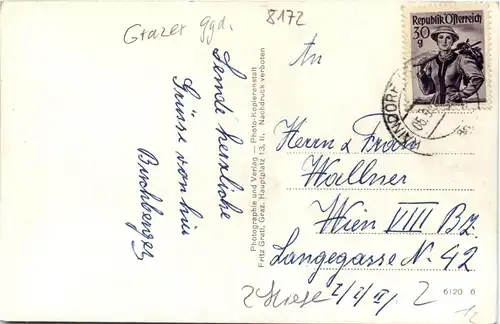 Grazer ggd.
8172
Sende herzliche
Grüsse von hier
Photographie und Verlag — Photo-Kopieranstalt
Fritz Gratl, Graz, Hauptplatz 13, II. Nachdruck verboten
Republik Österreich
30
g
An
Herrn u Frau
Wallner
Wien VIII Bz.
Langegasse N. 42
6120 6
2